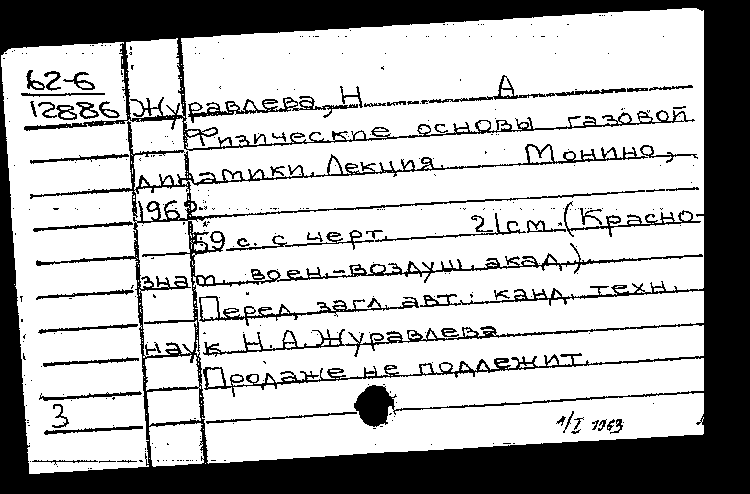 62-6
12886
Журавлева, Н А
Физические основы газовой
динамики. Лекция. Монино,
1962
59 с. с черт. 21см. (Красно-
знам. воен.-воздуш. акад.)
Перед загл. авт.: канд. техн.
наук Н.А.Журавлева
Продаже не подлежит.
3
1/I 1963